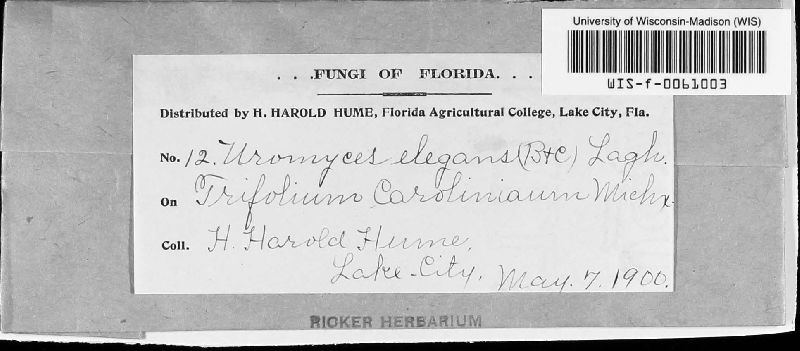 University of Wisconsin-Madison (WIS)
WIS-f-0061003
. . .FUNGI OF FLORIDA. . .
Distributed by H. HAROLD HUME, Florida Agricultural College, Lake City, Fla.
No. 12. Uromyces elegans (B+C) Lagh.
On Trifolium Caroliniaum Michx.
Coll. H. Harold Hume,
Lake-City, May. 7. 1900.
RICKER HERBARIUM